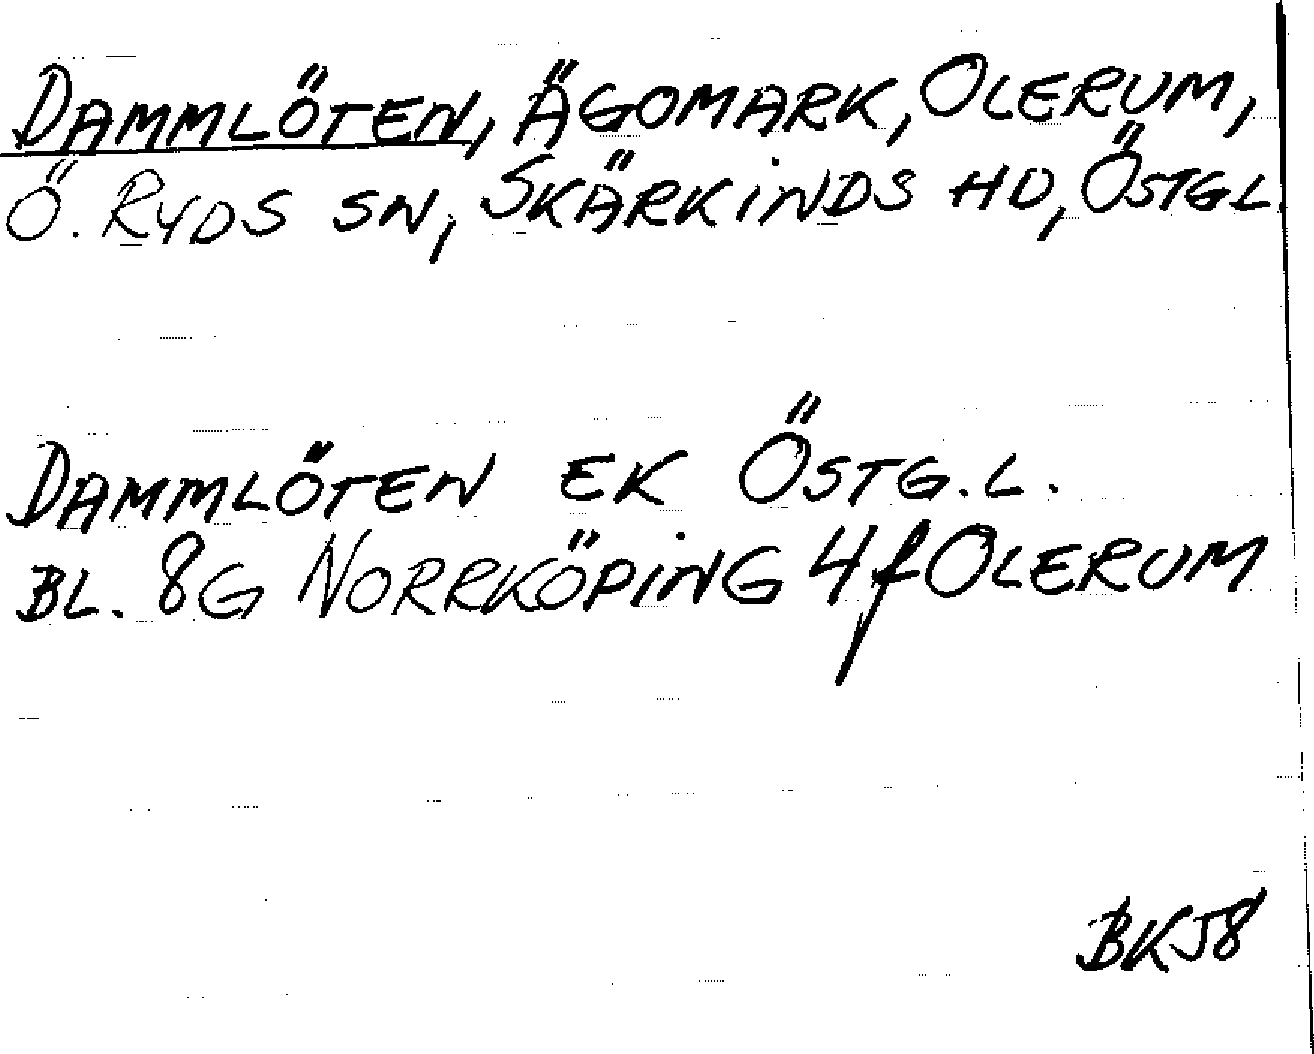 DAMMLÖTEN, ÄGOMARK, OLERUM,
Ö. RYDS SN, SKÄRKINDS HD, ÖSTGL.
DAMMLÖTEN EK ÖSTG.L.
BL. 8G NORRKÖPING 4f OLERUM
BKJ8